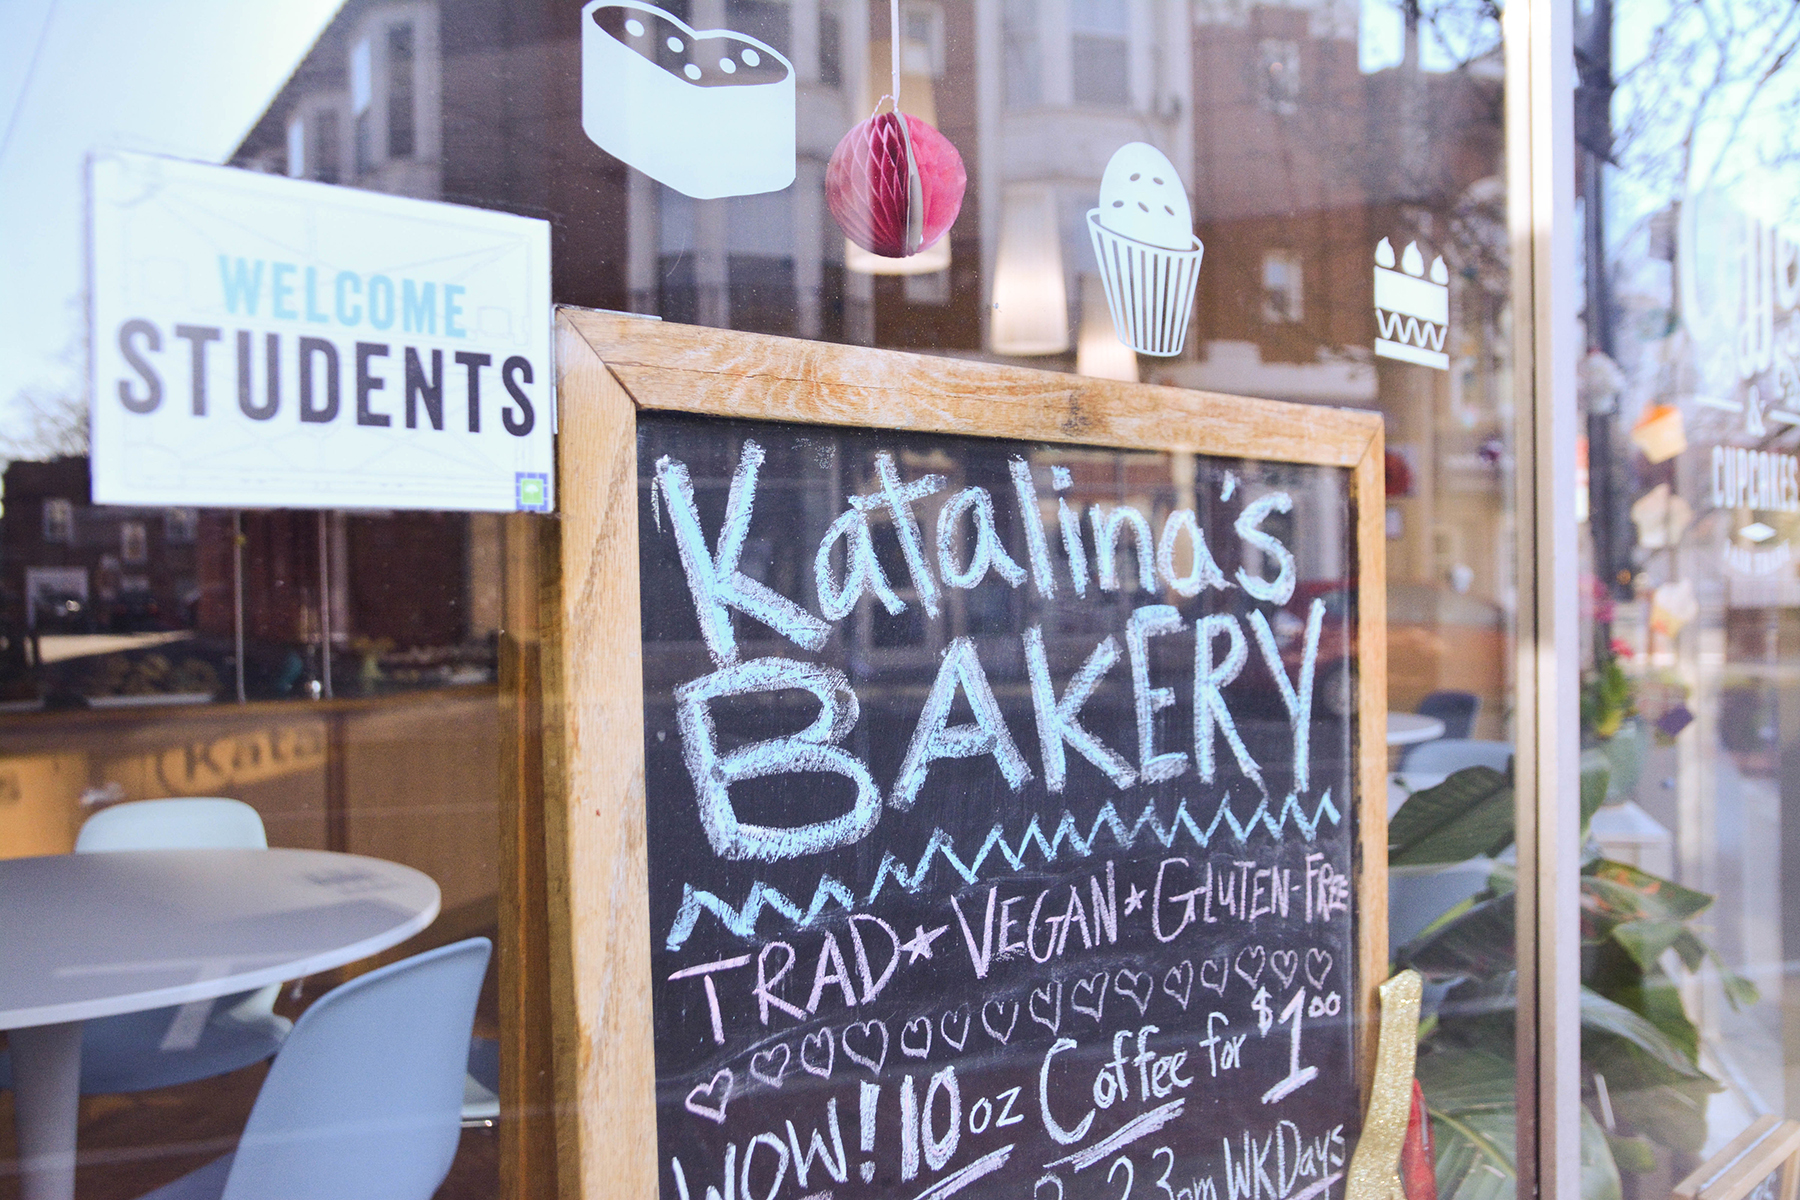 WELCOME
STUDENTS
Katalina's
BAKERY
TRAD★VEGAN★GLUTEN-FREE
WOW! 10 oz Coffee for $1.00
WKDays
Kata
&
CUPCAKES